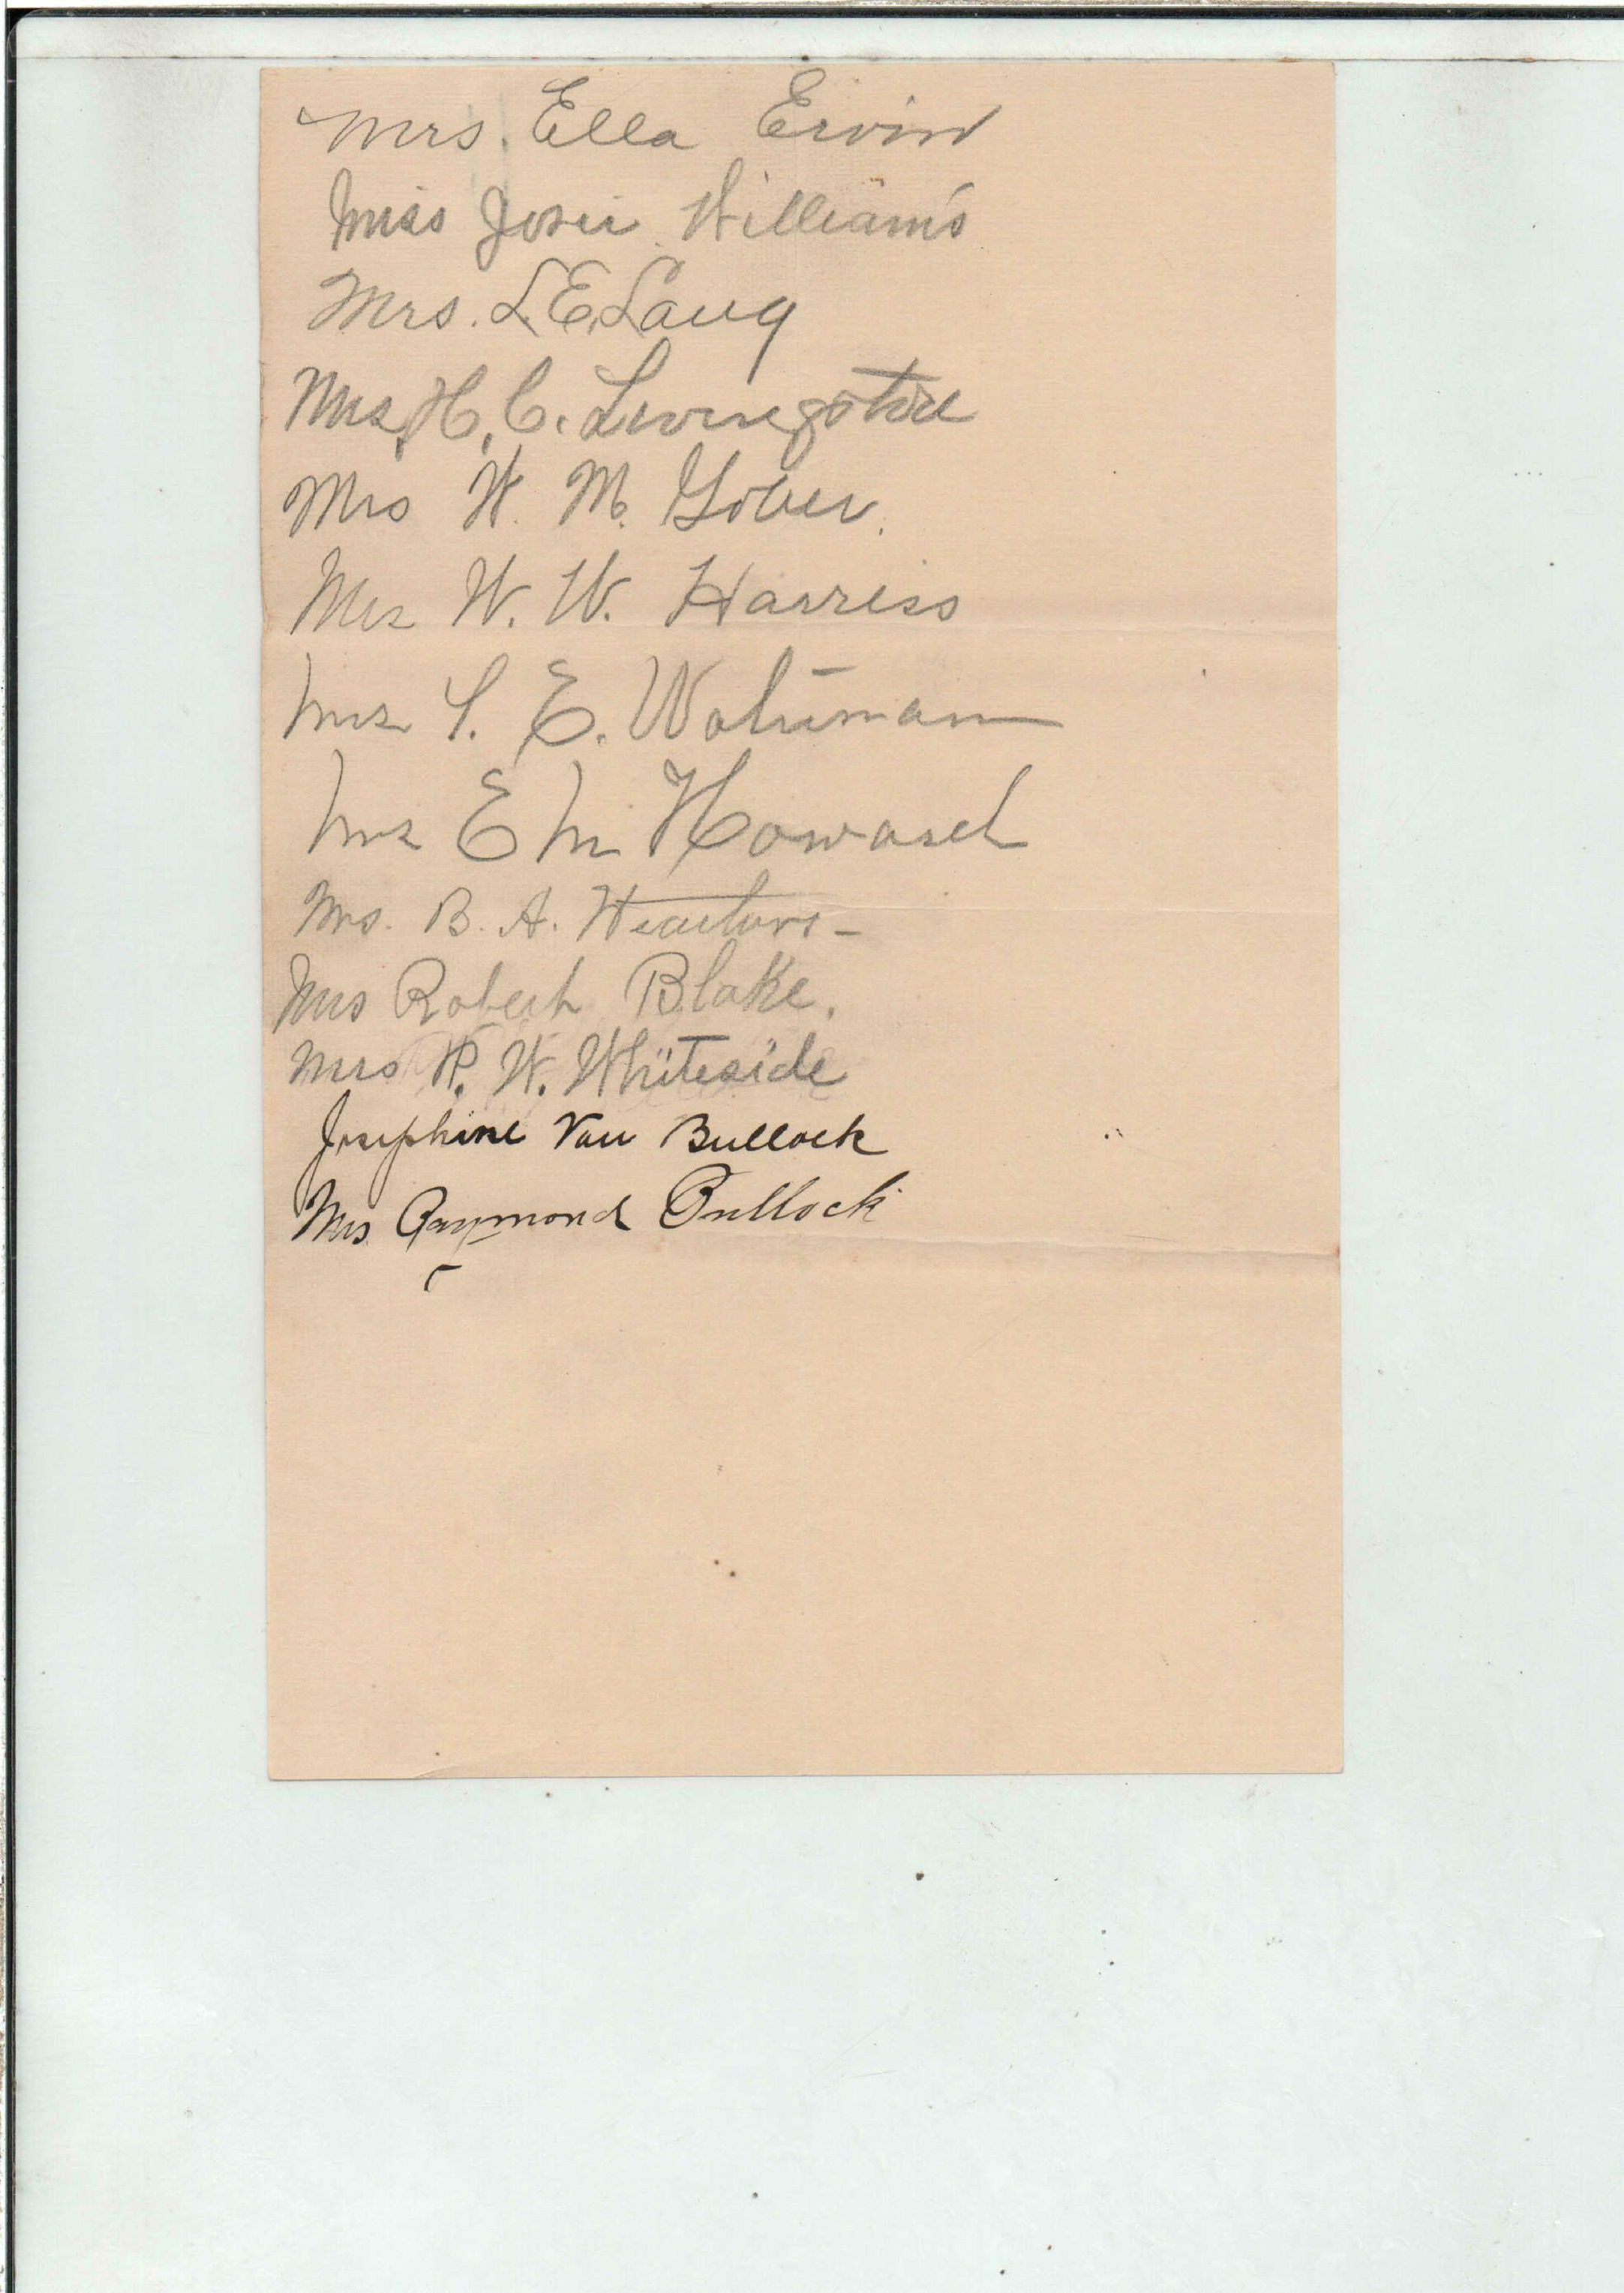 Mrs. Ella Ervin
Miss Josie Williams
Mrs. L. E. Lang
Mrs. H. C. Livingstone
Mrs W. M. Gober.
Mrs W. W. Harriss
Mrs E. Wolriman
Mrs E M Howard
Mrs. B. A.
Mrs Robert Blake.
Mrs W. Whiteside
Josephine Van Bullock
Mrs. Raymond Bullock